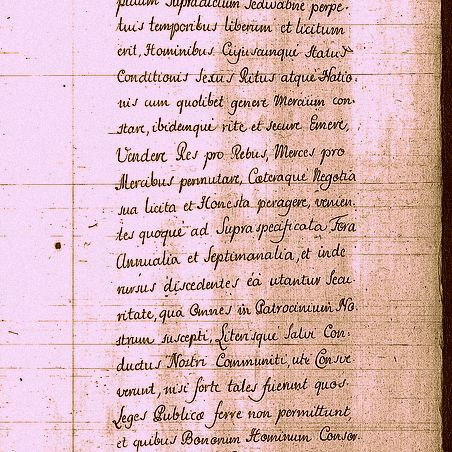 pidum Supradictum Sedwabne perpe-
tuis temporibus liberum et licitum
erit, Hominibus Cujusqunque Status
Conditionis Sexus Ritus atque Natio-
nis cum quolibet genere Mercium con-
stare, ibidemque rite et secure Emere,
Vendere Res pro Rebus, Merces pro
Mercibus permutare, Cæteraque Negotia
sua licita et Honesta peragere, venien-
tes quoque ad Supra specificata Fora
Annualia et Septimanalia, et inde
rursus discedentes eâ utantur Secu-
ritate, quâ Omnes in Patrocinium No-
strum suscepti, Literisque Salvi Con-
ductus Nostri Communiti, uti Consve-
verunt, nisi forte tales fuerint quos
Leges Publicæ ferre non permittunt,
et quibus Bonorum Hominum Consor-